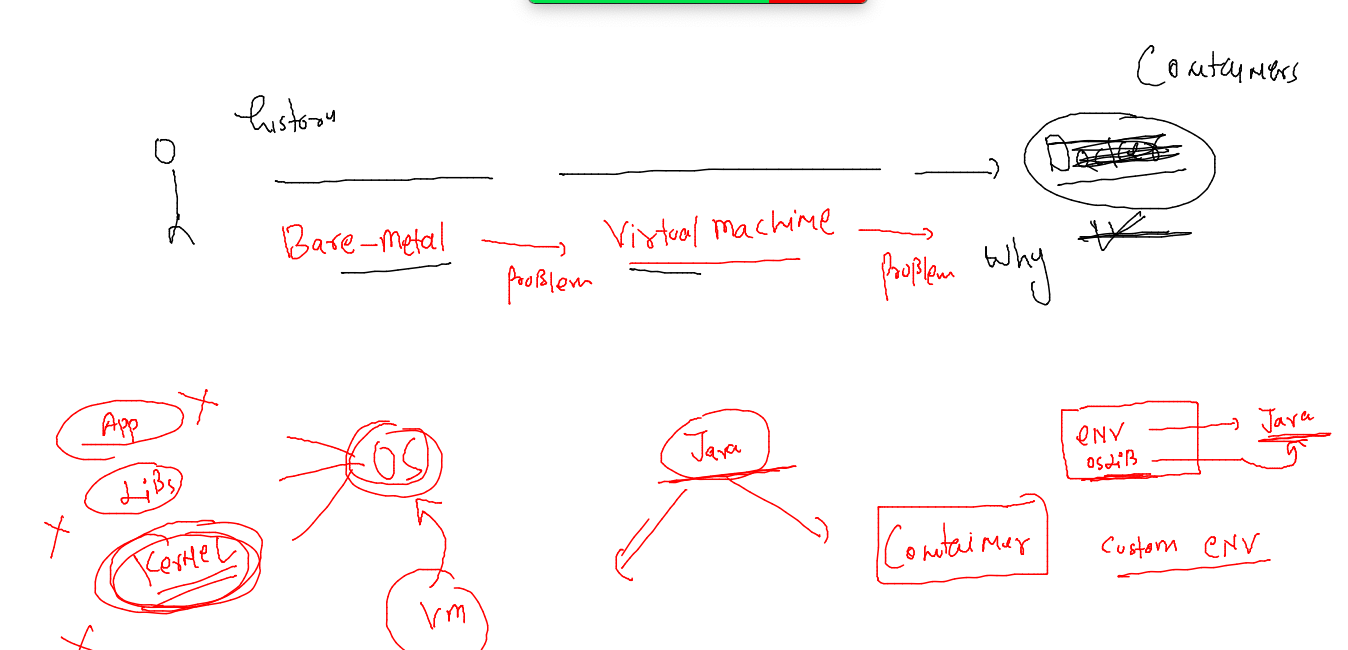 Containers
history
Docker
Bare-Metal
Virtual Machine
problem
problem
Why
App
LiBs
Kernel
OS
VM
Java
Container
ENV
OSLiB
Java
Custom ENV